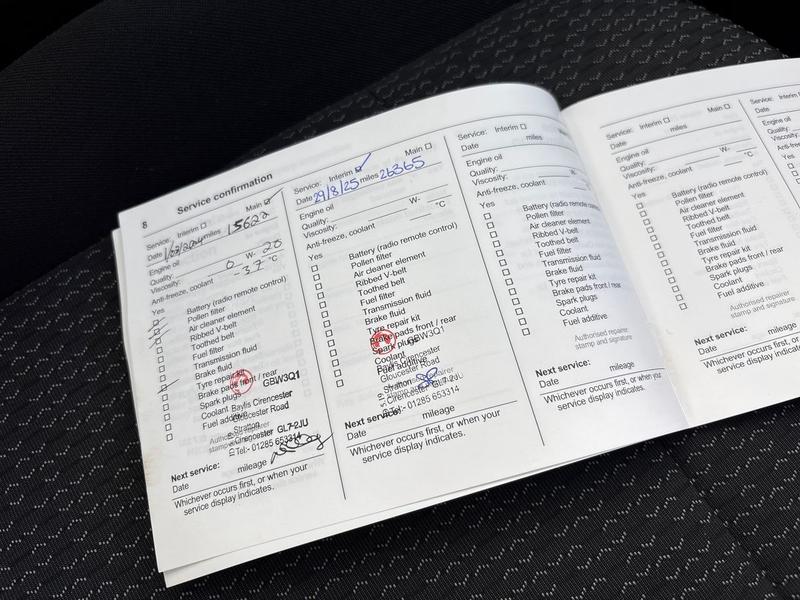 8 Service confirmation
Service: Interim Main
Date miles 15622
Engine oil
Quality:
Viscosity: 0 W- 20
Anti-freeze, coolant -37 °C
Yes
Battery (radio remote control)
Pollen filter
Air cleaner element
Ribbed V-belt
Toothed belt
Fuel filter
Transmission fluid
Brake fluid
Tyre repair kit
Brake pads front / rear
Spark plugs GBW3Q1
Coolant Baylis Cirencester
Fuel additive Gloucester Road
Stratton
Authorised repairer
stamp Cirencester GL7 2JU
Tel:- 01285 653314
Next service:
Date mileage
Whichever occurs first, or when your
service display indicates.
Service: Interim Main
Date 29/8/25 miles 26365
Engine oil
Quality:
Viscosity: W- °C
Anti-freeze, coolant
Yes
Battery (radio remote control)
Pollen filter
Air cleaner element
Ribbed V-belt
Toothed belt
Fuel filter
Transmission fluid
Brake fluid
Tyre repair kit
Brake pads front / rear
Spark plugs GBW3Q1
Coolant
Fuel additive Cirencester
Gloucester Road
Stratton
Cirencester GL7 2JU
Tel:- 01285 653314
Next service:
Date mileage
Whichever occurs first, or when your
service display indicates.
Service: Interim Main
Date miles
Engine oil
Quality: W-
Viscosity: °C
Anti-freeze, coolant
Yes
Battery (radio remote control)
Pollen filter
Air cleaner element
Ribbed V-belt
Toothed belt
Fuel filter
Transmission fluid
Brake fluid
Tyre repair kit
Brake pads front / rear
Spark plugs
Coolant
Fuel additive
Authorised repairer
stamp and signature
Next service:
Date mileage
Whichever occurs first, or when your
service display indicates.
Service: Interim Main
Date miles
Engine oil
Quality: W-
Viscosity: °C
Anti-freeze, coolant
Yes
Battery (radio remote control)
Pollen filter
Air cleaner element
Ribbed V-belt
Toothed belt
Fuel filter
Transmission fluid
Brake fluid
Tyre repair kit
Brake pads front / rear
Spark plugs
Coolant
Fuel additive
Authorised repairer
stamp and signature
Next service:
Date mileage
Whichever occurs first, or when your
service display indicates.
Service: Interim
Date
Engine oil
Quality:
Viscosity:
Yes